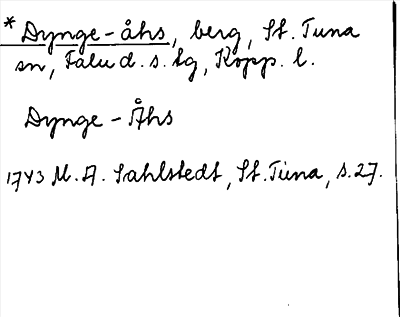 * Dynge-åhs, berg, St. Tuna
sn, Falu d. s. tg, Kopp. l.
Dynge - Åhs
1743 M. A. Sahlstedt, St. Tuna, s. 27.